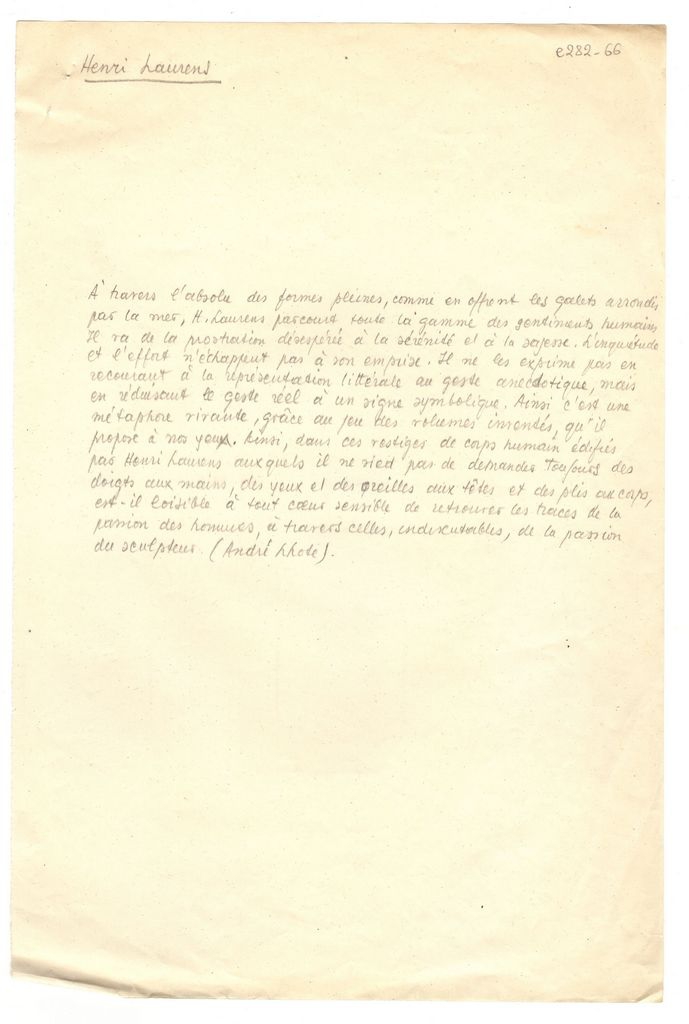 Henri Laurens
e282-66
À travers l'absolu des formes pleines, comme en offrent les galets arrondis
par la mer, H. Laurens parcourt toute la gamme des sentiments humains
Il va de la prostration désespérée à la sérénité et à la sagesse. L'inquiétude
et l'effort n'échappent pas à son emprise. Il ne les exprime pas en
recourant à la représentation littérale au geste anecdotique, mais
en réduisant le geste réel à un signe symbolique. Ainsi c'est une
métaphore vivante, grâce au jeu des volumes inventés, qu'il
propose à nos yeux. Ainsi, dans ces vestiges de corps humain édifiés
par Henri Laurens auxquels il ne sied pas de demander toujours des
doigts aux mains, des yeux et des oreilles aux têtes et des plis au corps,
est-il loisible à tout cœur sensible de retrouver les traces de la
passion des hommes, à travers celles, indiscutables, de la passion
du sculpteur. (André Lhote).